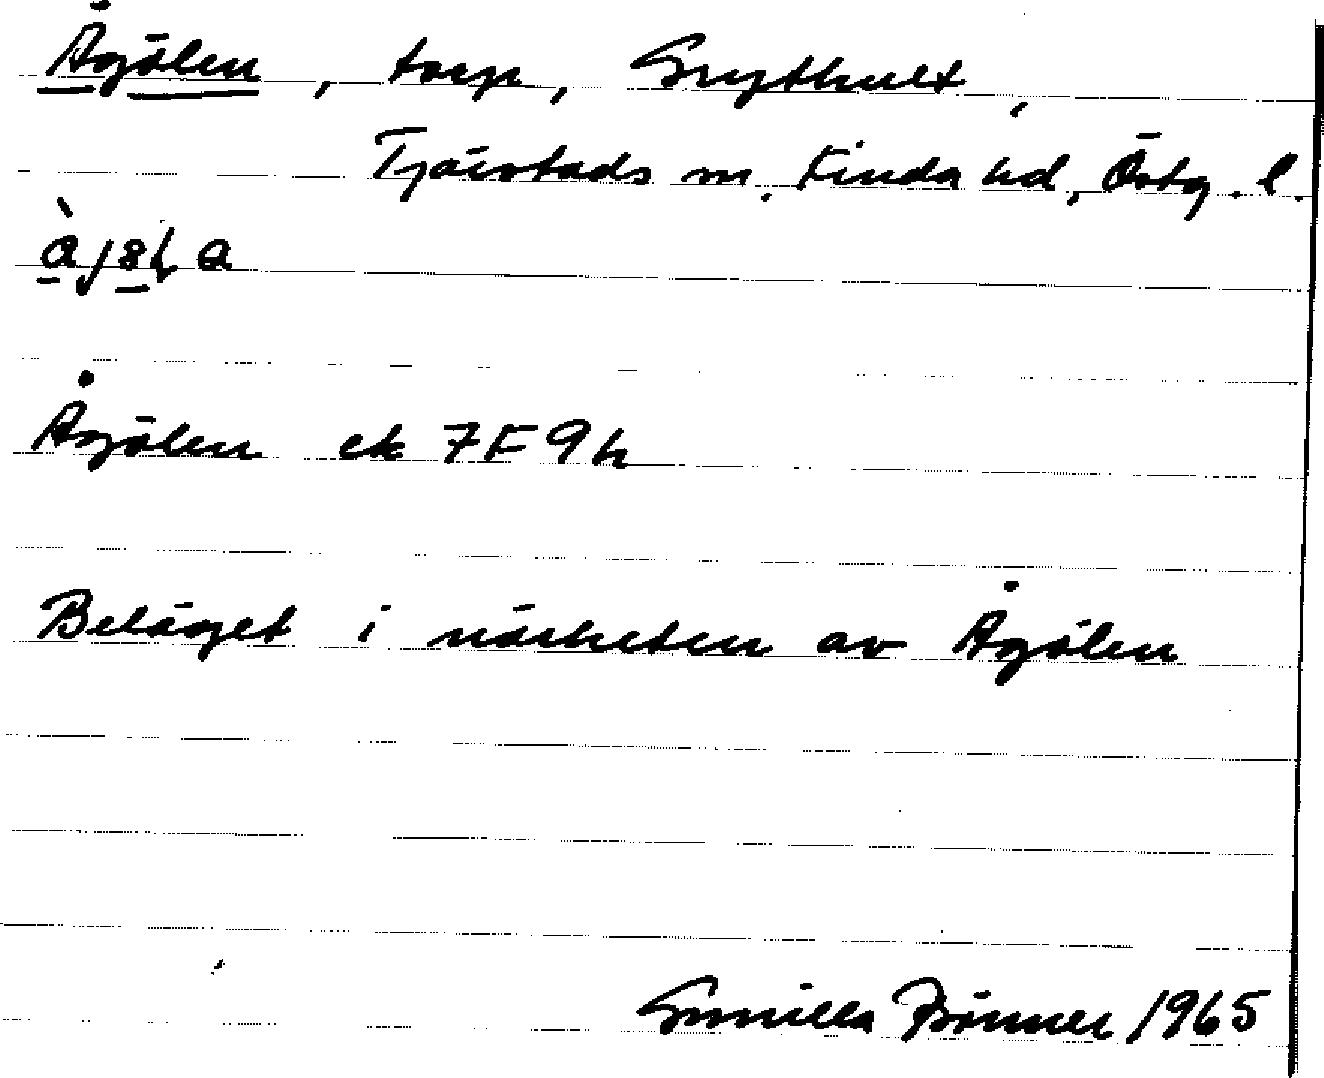 Ågölen, torp, Grythult,
Tjärstads sn. Kinda hd, Östg. l.
Ågölen ek 7F9h
Beläget i närheten av Ågölen
Gunilla Bönner/1965